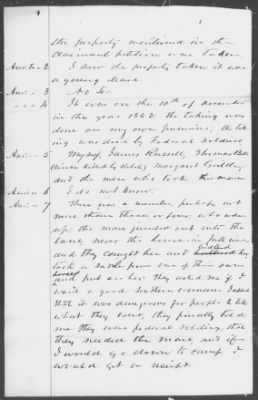 the property mentioned in the
claimants petition was taken.
Ans to 2 I saw the property taken it was
a young mare.
Ans - 3 No Sir.
" - 4 It was on the 10th of December
in the year 1863. the taking was
done on my own premises, the tak
ing was done by Federal Soldiers
Ans - 5 Myself, James Russell, Thomas
Margaret
and the men who took the mare
Ans - 6 I do not know.
Ans - 7 There was a number, perhaps not
more than three or four, who rode
up, the mare jumped out into the
lane, near the house
and they caught her and bridled her
took a saddle from one of their own
horses and put on her they asked me if I
was a good Southern man I said
it was dangerous for people to tell
what they were, they finally told
me they were federal soldiers, that
they needed the mare, and if
I would go down to camp I
would get a receipt